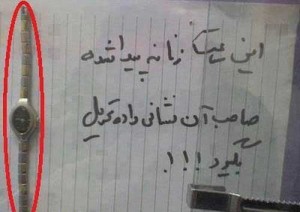 این ساعت زنانه پیدا شده
صاحب آن نشانی داده تحویل
بگیرد !!!